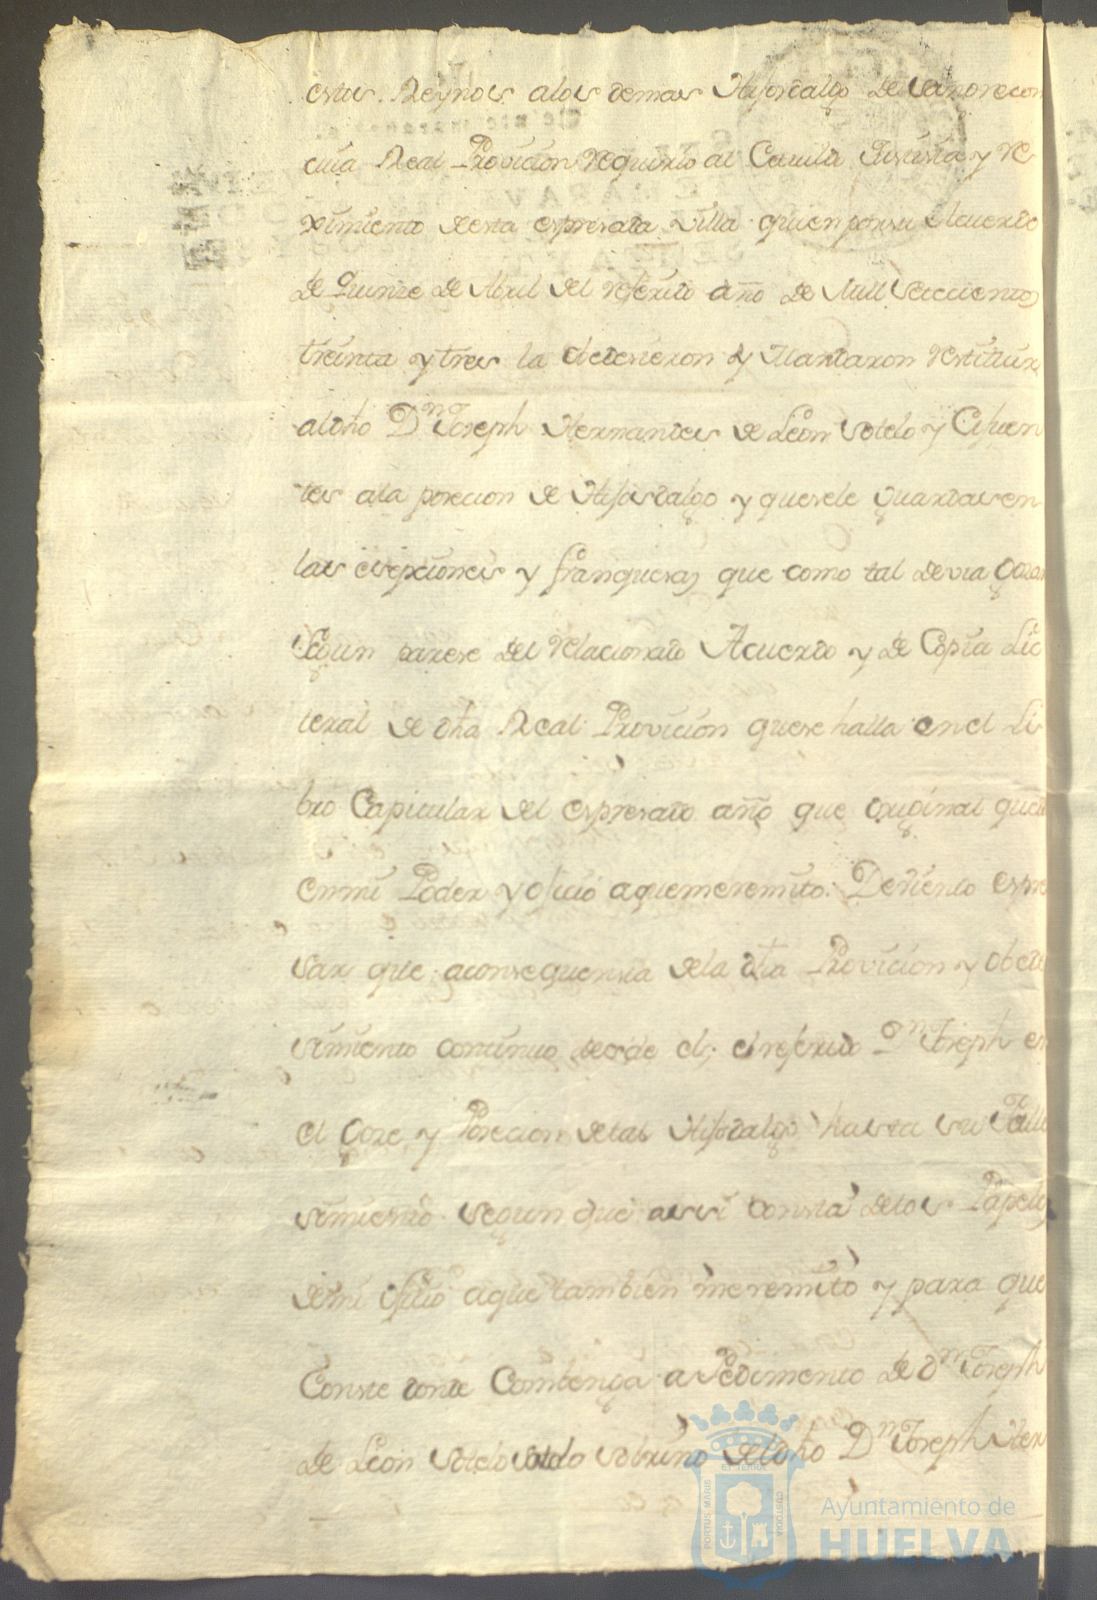 estos Reynos alos demas Hijosdalgo de
cuia Real Provicion requirio al Cauildo Justisia y Re
ximiento desta espresada villa quien por su Acuerdo
de Quinze de Abril del referido año de Mill Setecientos
treinta y tres la obedesieron y Mandaron restituir
aldho Dn Joseph Hernandes de Leon Sotelo y Cifuen
tes ala posecion de Hijosdalgo y quesele Guardasen
las esepsiones y franquesas que como tal devia Gosar
Segun parese del relacionado Acuerdo y de Copia Lit
teral de dha Real Provicion quese halla enel Li
bro Capitular del espresado año que original queda
enmi Poder y oficio aquemeremito: Deviendo espre
sar que aconsequensia dela dha Provicion y obede
simiento continuo desde el, el referido Dn Joseph en
el Goze y Posecion detal Hijodalgo hasta su Falle
simiento segun que assi consta delos Papeles
demi ofisio aque tambien meremito y para que
Conste donde Combenga a Pedimento de Dn Joseph
de Leon Sotelo Sotelo sobrino deldho Dn Joseph Her
Ayuntamiento de
HUELVA
PORTUS MARIS
ET TERRÆ
CUSTODIA